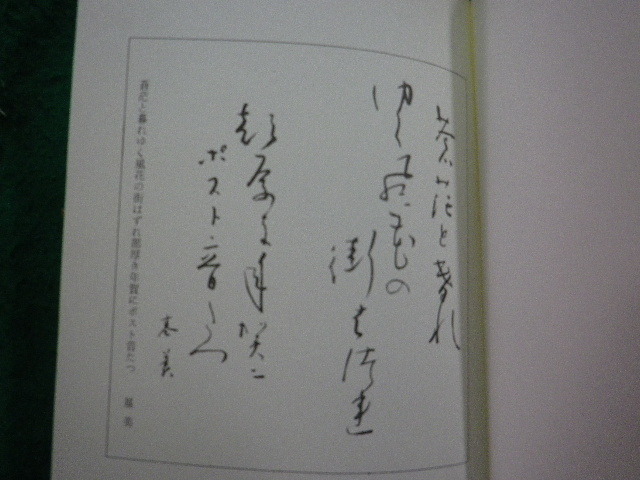 蒼茫と暮れ
ゆく風花の
街はづれ
部厚き年賀に
ポスト音たつ
蒼茫と暮れゆく風花の街はずれ部厚き年賀にポスト音たつ